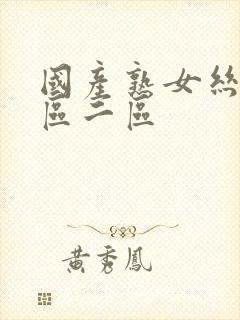 國產熟女絲
區二區
黃秀鳳